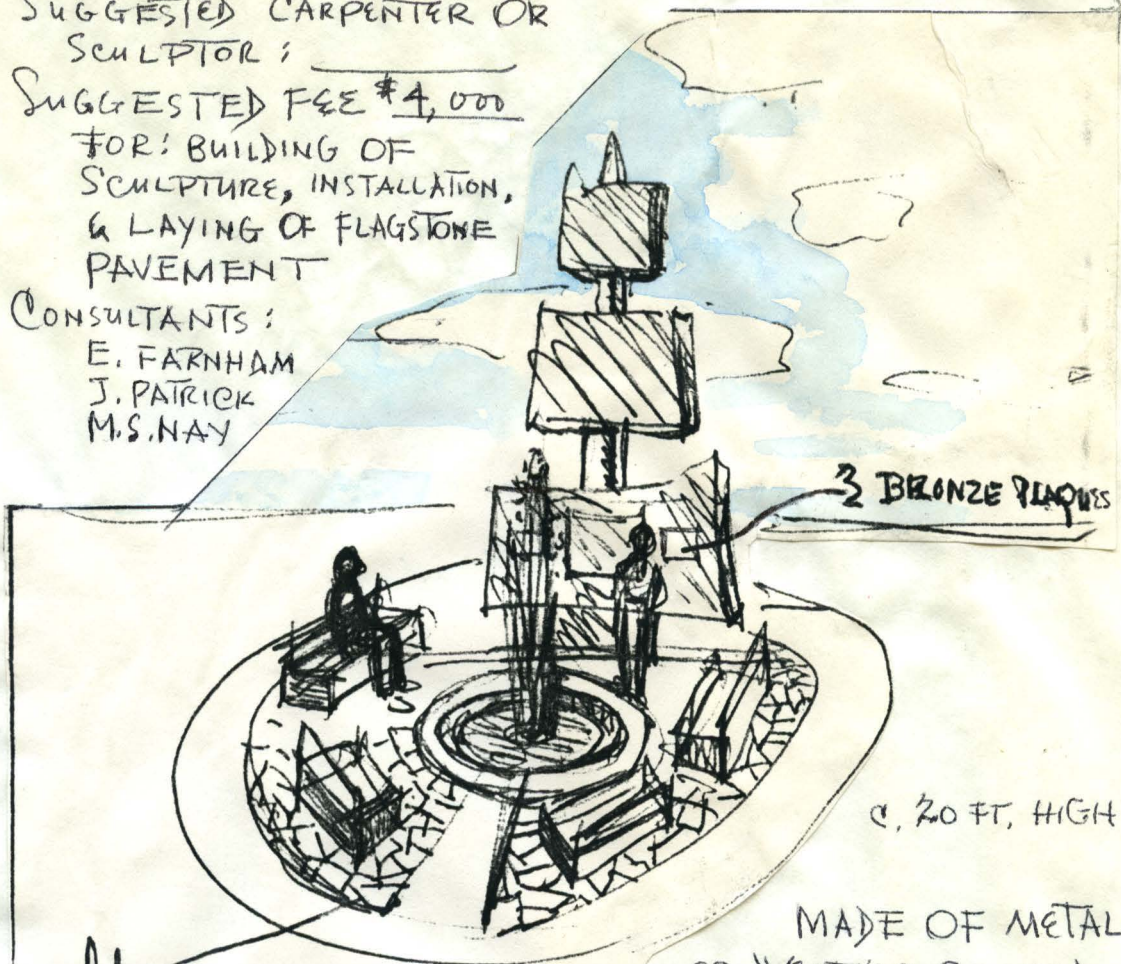 SUGGESTED CARPENTER OR
SCULPTOR:
SUGGESTED FEE $4,000
FOR: BUILDING OF
SCULPTURE, INSTALLATION,
& LAYING OF FLAGSTONE
PAVEMENT
CONSULTANTS:
E. FARNHAM
J. PATRICK
M.S. NAY
3 BRONZE PLAQUES
C. 20 FT. HIGH
MADE OF METAL